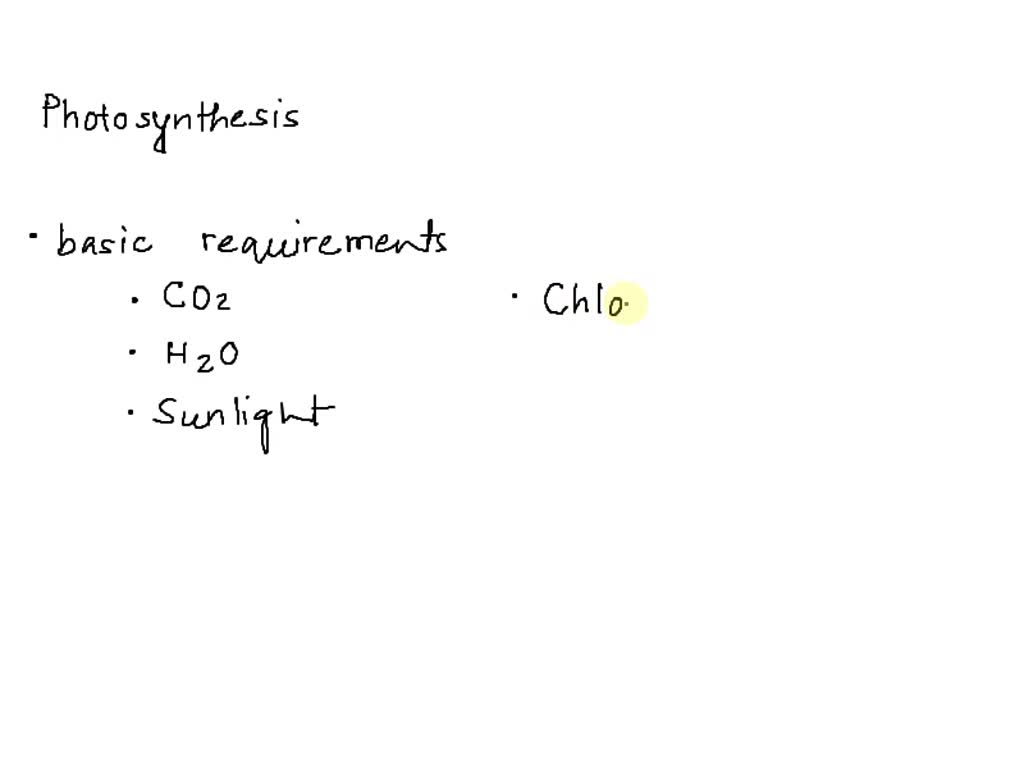 Photosynthesis
· basic requirements
· CO2
· H2O
· Sunlight
· Chlo